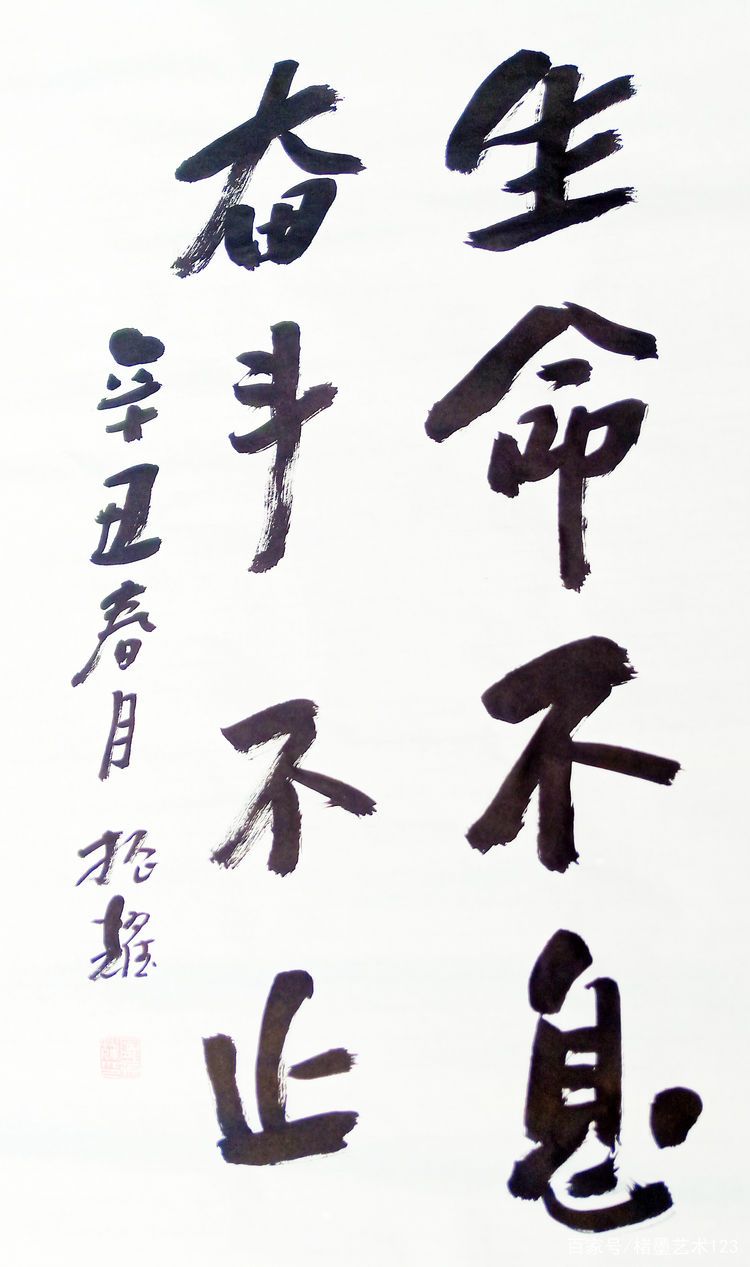 生命不息
奋斗不止
辛丑春月
百家号/楮墨艺术123